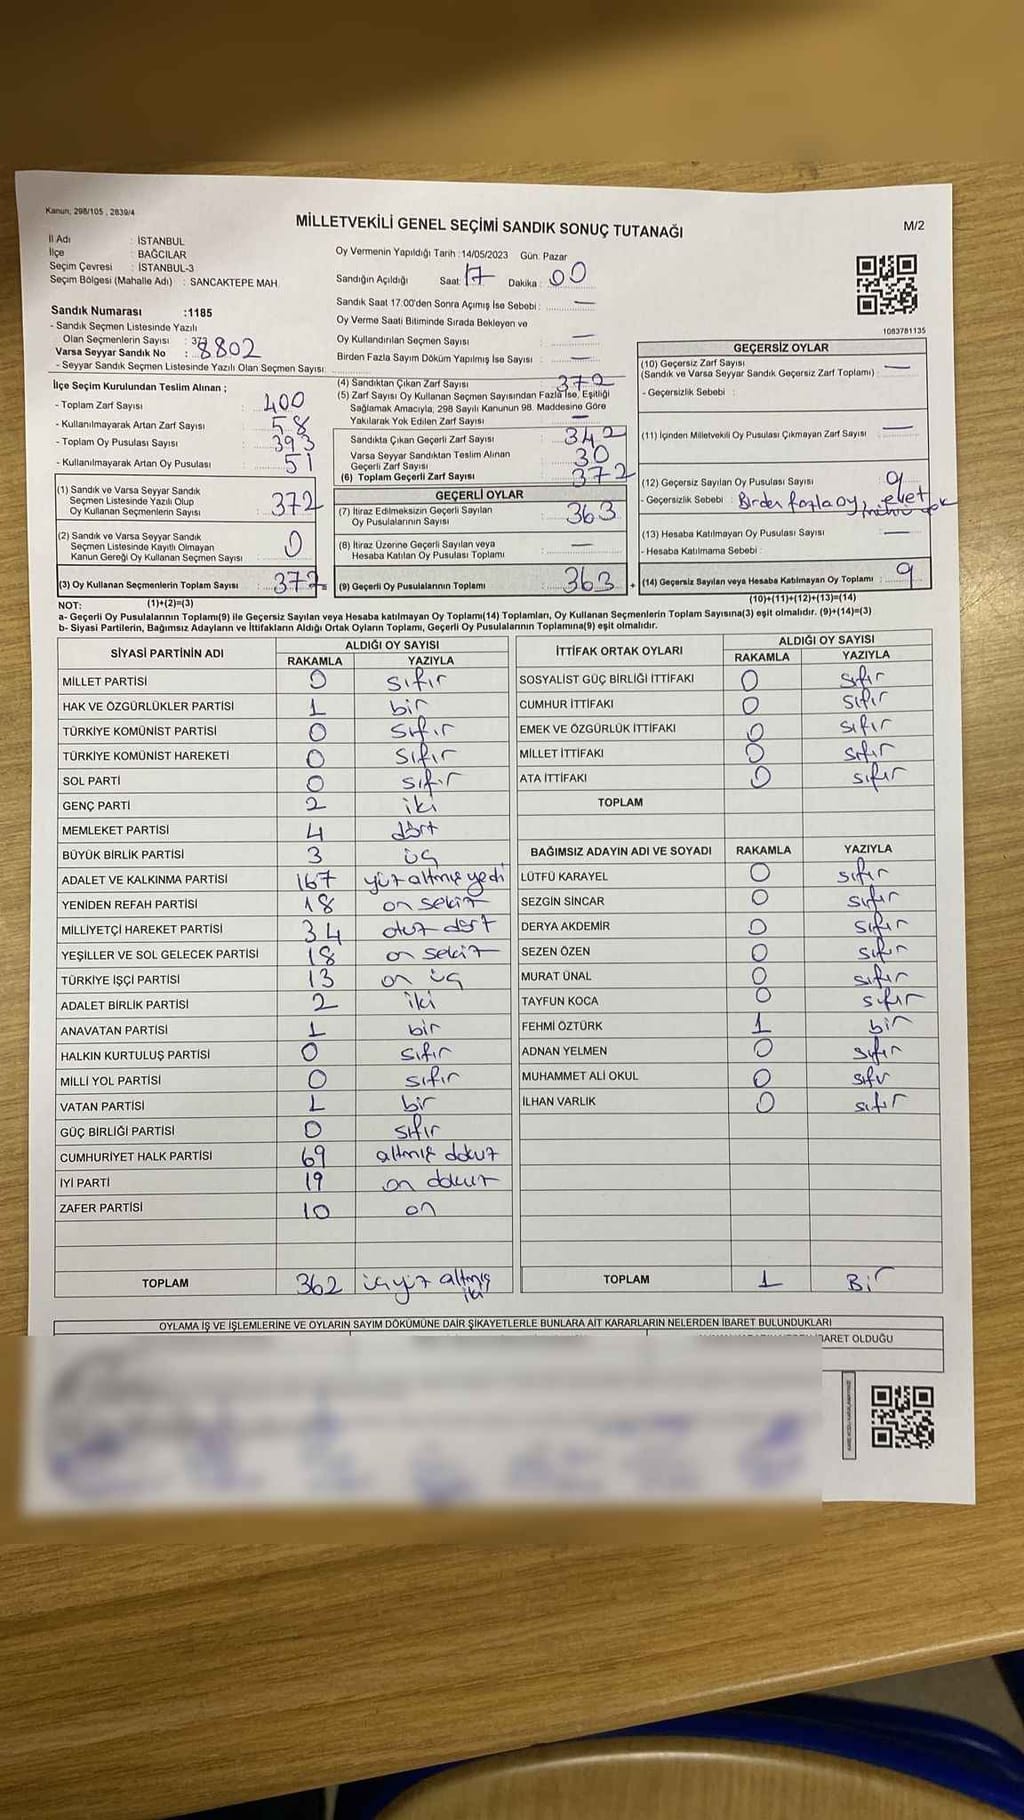 Kanun, 298/105 , 2839/4
MİLLETVEKİLİ GENEL SEÇİMİ SANDIK SONUÇ TUTANAĞI
M/2
İl Adı : İSTANBUL
İlçe : BAĞCILAR
Seçim Çevresi : İSTANBUL-3
Seçim Bölgesi (Mahalle Adı) : SANCAKTEPE MAH.
Oy Vermenin Yapıldığı Tarih :14/05/2023 Gün: Pazar
Sandığın Açıldığı Saat: 17 Dakika : 00
Sandık Saat 17:00'den Sonra Açımış İse Sebebi : —
Oy Verme Saati Bitiminde Sırada Bekleyen ve
Oy Kullandırılan Seçmen Sayısı —
Birden Fazla Sayım Döküm Yapılmış İse Sayısı —
1083781135
Sandık Numarası :1185
- Sandık Seçmen Listesinde Yazılı
Olan Seçmenlerin Sayısı :
Varsa Seyyar Sandık No : 8802
- Seyyar Sandık Seçmen Listesinde Yazılı Olan Seçmen Sayısı:
İlçe Seçim Kurulundan Teslim Alınan ;
- Toplam Zarf Sayısı : 400
- Kullanılmayarak Artan Zarf Sayısı : 58
- Toplam Oy Pusulası Sayısı : 393
- Kullanılmayarak Artan Oy Pusulası : 51
(1) Sandık ve Varsa Seyyar Sandık
Seçmen Listesinde Yazılı Olup
Oy Kullanan Seçmenlerin Sayısı : 372
(2) Sandık ve Varsa Seyyar Sandık
Seçmen Listesinde Kayıtlı Olmayan
Kanun Gereği Oy Kullanan Seçmen Sayısı : 0
(3) Oy Kullanan Seçmenlerin Toplam Sayısı : 372 =
(1)+(2)=(3)
(4) Sandıktan Çıkan Zarf Sayısı 372
(5) Zarf Sayısı Oy Kullanan Seçmen Sayısından Fazla İse, Eşitliği
Sağlamak Amacıyla, 298 Sayılı Kanunun 98. Maddesine Göre
Yakılarak Yok Edilen Zarf Sayısı : —
Sandıkta Çıkan Geçerli Zarf Sayısı : 342
Varsa Seyyar Sandıktan Teslim Alınan
Geçerli Zarf Sayısı : 30
(6) Toplam Geçerli Zarf Sayısı : 372
GEÇERLİ OYLAR
(7) İtiraz Edilmeksizin Geçerli Sayılan
Oy Pusulalarının Sayısı : 363
(8) İtiraz Üzerine Geçerli Sayılan veya
Hesaba Katılan Oy Pusulası Toplamı : —
(9) Geçerli Oy Pusulalarının Toplamı : 363 +
GEÇERSİZ OYLAR
(10) Geçersiz Zarf Sayısı
(Sandık ve Varsa Seyyar Sandık Geçersiz Zarf Toplamı) : —
- Geçersizlik Sebebi :
(11) İçinden Milletvekili Oy Pusulası Çıkmayan Zarf Sayısı : —
(12) Geçersiz Sayılan Oy Pusulası Sayısı : 9
- Geçersizlik Sebebi : Birden fazla oy, evet
mührü yok
(13) Hesaba Katılmayan Oy Pusulası Sayısı : —
- Hesaba Katılmama Sebebi :
(14) Geçersiz Sayılan veya Hesaba Katılmayan Oy Toplamı : 9
(10)+(11)+(12)+(13)=(14)
NOT:
a- Geçerli Oy Pusulalarının Toplamı(9) ile Geçersiz Sayılan veya Hesaba katılmayan Oy Toplamı(14) Toplamları, Oy Kullanan Seçmenlerin Toplam Sayısına(3) eşit olmalıdır. (9)+(14)=(3)
b- Siyasi Partilerin, Bağımsız Adayların ve İttifakların Aldığı Ortak Oyların Toplamı, Geçerli Oy Pusulalarının Toplamına(9) eşit olmalıdır.
SİYASİ PARTİNİN ADI ALDIĞI OY SAYISI
RAKAMLA YAZIYLA
MİLLET PARTİSİ 0 sıfır
HAK VE ÖZGÜRLÜKLER PARTİSİ 1 bir
TÜRKİYE KOMÜNİST PARTİSİ 0 sıfır
TÜRKİYE KOMÜNİST HAREKETİ 0 sıfır
SOL PARTİ 0 sıfır
GENÇ PARTİ 2 iki
MEMLEKET PARTİSİ 4 dört
BÜYÜK BİRLİK PARTİSİ 3 üç
ADALET VE KALKINMA PARTİSİ 167 yüz altmış yedi
YENİDEN REFAH PARTİSİ 18 on sekiz
MİLLİYETÇİ HAREKET PARTİSİ 34 otuz dört
YEŞİLLER VE SOL GELECEK PARTİSİ 18 on sekiz
TÜRKİYE İŞÇİ PARTİSİ 13 on üç
ADALET BİRLİK PARTİSİ 2 iki
ANAVATAN PARTİSİ 1 bir
HALKIN KURTULUŞ PARTİSİ 0 sıfır
MİLLİ YOL PARTİSİ 0 sıfır
VATAN PARTİSİ 1 bir
GÜÇ BİRLİĞİ PARTİSİ 0 sıfır
CUMHURİYET HALK PARTİSİ 69 altmış dokuz
İYİ PARTİ 19 on dokuz
ZAFER PARTİSİ 10 on
TOPLAM 362 üçyüz altmış
iki
İTTİFAK ORTAK OYLARI ALDIĞI OY SAYISI
RAKAMLA YAZIYLA
SOSYALİST GÜÇ BİRLİĞİ İTTİFAKI 0 sıfır
CUMHUR İTTİFAKI 0 sıfır
EMEK VE ÖZGÜRLÜK İTTİFAKI 0 sıfır
MİLLET İTTİFAKI 0 sıfır
ATA İTTİFAKI 0 sıfır
TOPLAM
BAĞIMSIZ ADAYIN ADI VE SOYADI RAKAMLA YAZIYLA
LÜTFÜ KARAYEL 0 sıfır
SEZGİN SİNCAR 0 sıfır
DERYA AKDEMİR 0 sıfır
SEZEN ÖZEN 0 sıfır
MURAT ÜNAL 0 sıfır
TAYFUN KOCA 0 sıfır
FEHMİ ÖZTÜRK 1 bir
ADNAN YELMEN 0 sıfır
MUHAMMET ALİ OKUL 0 sıfır
İLHAN VARLIK 0 sıfır
TOPLAM 1 Bir
OYLAMA İŞ VE İŞLEMLERİNE VE OYLARIN SAYIM DÖKÜMÜNE DAİR ŞİKAYETLERLE BUNLARA AİT KARARLARIN NELERDEN İBARET BULUNDUKLARI
İBARET OLDUĞU